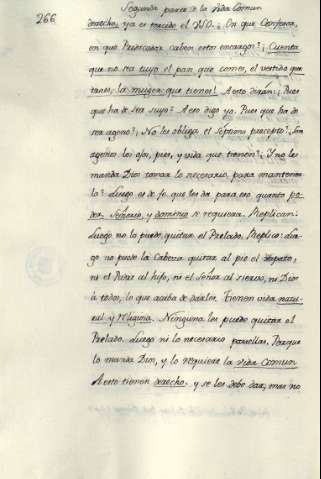 266
Segunda parte de la Vida Comun
derecho, ya es torcido el uso. ¿En que Confesor,
en que Predicador caben estos encargos? ¿Cuenta
que no sea tuyo el pan que comes, el vestido que
traes, la muger que tienes! A esto dirán: ¿Pues
que ha de ser suyo? A eso digo yo. Pues que ha de
ser ageno? ¿No les obliga el septimo precepto? ¿Son
agenos los ojos, pies, y vida que tienen? ¿Y no les
manda Dios tomar lo necesario para mantener-
la? Luego es de fe que les da para eso quanto po-
der, Señorio, y dominio se requiera. Replican:
Luego no lo puede quitar el Prelado. Replico: Lue-
go no puede la Cabeza quitar al pie el zapato,
ni el Padre al hijo, ni el Señor al siervo, ni Dios
à todos, lo que acaba de darles. Tienen vida natu-
ral y Religiosa. Ninguna les puede quitar el
Prelado. Luego ni lo necesario para ellas. Porque
lo manda Dios, y lo requiere la vida Comun
A esto tienen derecho, y se les debe dar; mas no